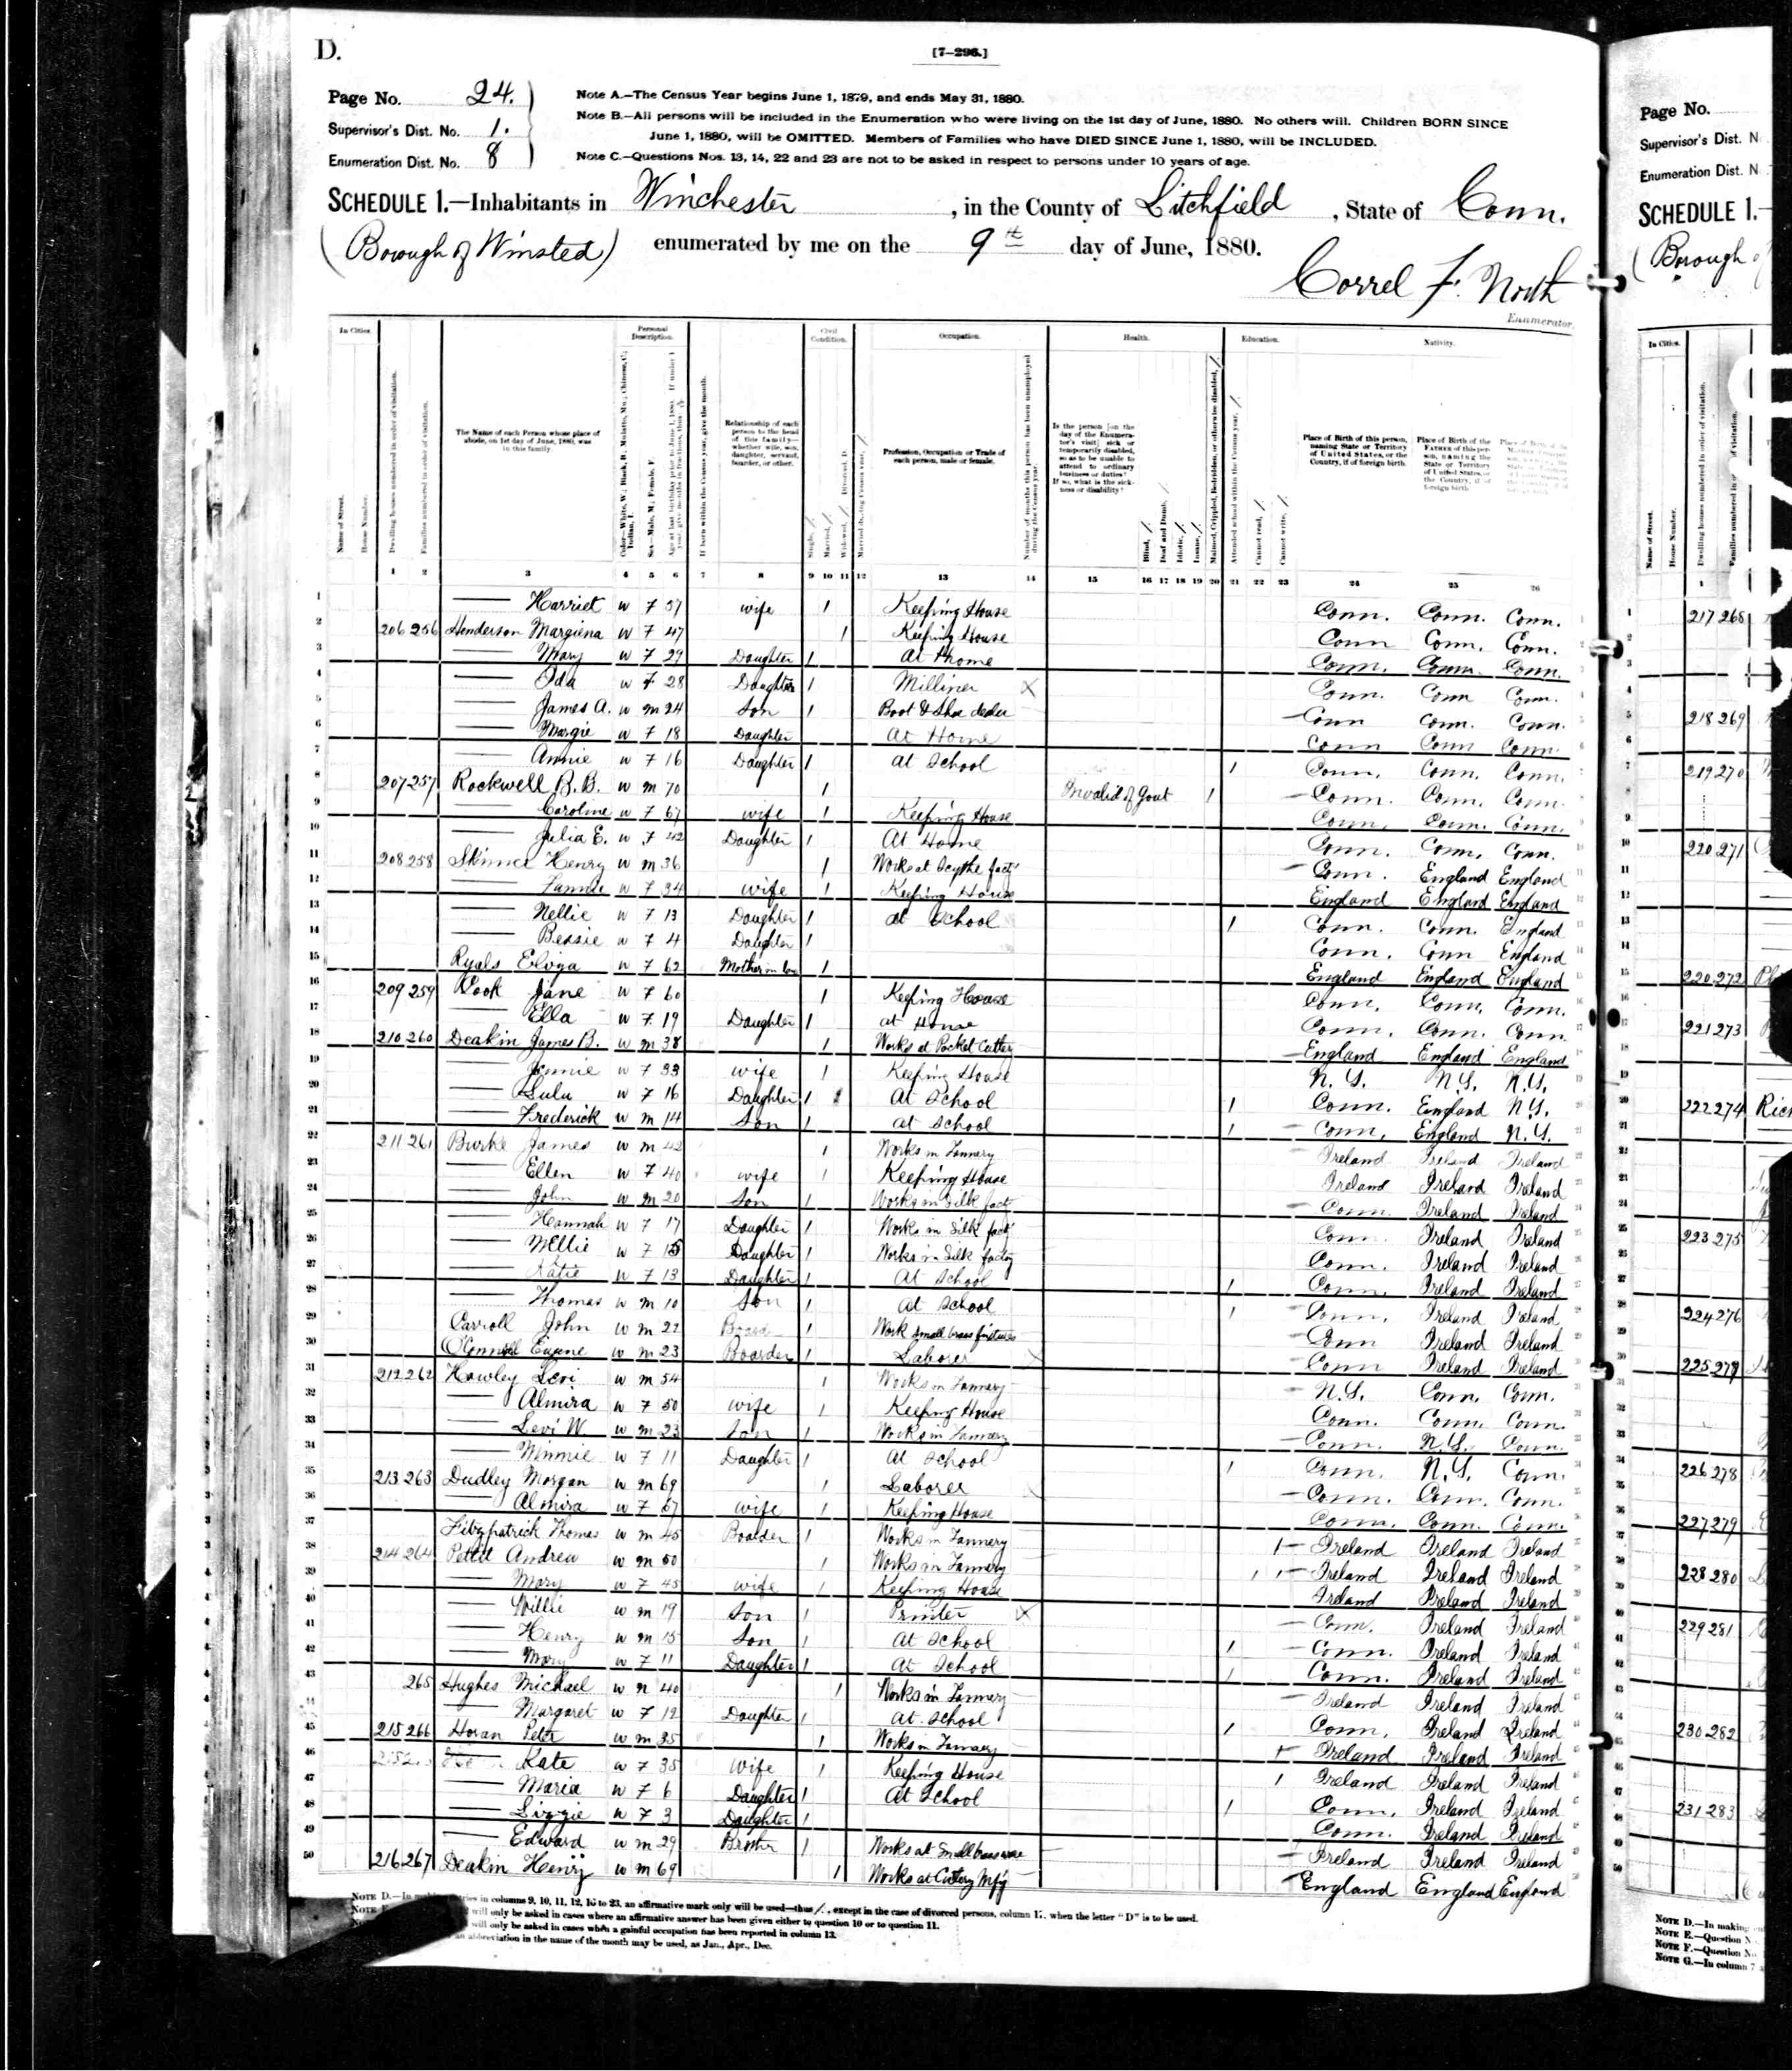 D.
[7-296.]
Page No. 24.
Supervisor's Dist. No. 1.
Enumeration Dist. No. 8
Note A.—The Census Year begins June 1, 1879, and ends May 31, 1880.
Note B.—All persons will be included in the Enumeration who were living on the 1st day of June, 1880. No others will. Children BORN SINCE
June 1, 1880, will be OMITTED. Members of Families who have DIED SINCE June 1, 1880, will be INCLUDED.
Note C.—Questions Nos. 13, 14, 22 and 23 are not to be asked in respect to persons under 10 years of age.
SCHEDULE 1.—Inhabitants in Winchester, in the County of Litchfield, State of Conn.
(Borough of Winsted) enumerated by me on the 9th day of June, 1880.
Correl F. North
Enumerator.
In Cities. Personal Description. Civil Condition. Occupation. Health. Education. Nativity.
The Name of each Person whose place of abode, on 1st day of June, 1880, was in this family.
Relationship of each person to the head of this family—whether wife, son, daughter, servant, boarder, or other.
Profession, Occupation or Trade of each person, male or female.
Place of Birth of this person, naming State or Territory of United States, or the Country, if of foreign birth.
1 2 3 4 5 6 7 8 9 10 11 12 13 14 15 16 17 18 19 20 21 22 23 24 25 26
1 — Harriet w F 57 wife / Keeping House Conn. Conn. Conn.
2 206 256 Henderson Margiena w F 47 / Keeping House Conn Conn. Conn.
3 — Mary w F 29 Daughter / At Home Conn. Conn. Conn.
4 — Ida w F 28 Daughter / Milliner Conn. Conn Conn.
5 — James A. w m 24 Son / Boot & Shoe dealer Conn Conn. Conn.
6 — Margie w F 18 Daughter / At Home Conn Conn Conn.
7 — Annie w F 16 Daughter / At School / Conn. Conn. Conn.
8 207 257 Rockwell R. B. w m 70 / Invalid of Gout / Conn. Conn. Conn.
9 — Caroline w F 67 wife / Keeping House Conn. Conn. Conn.
10 — Julia E. w F 42 Daughter / At Home Conn. Conn. Conn.
11 208 258 Skinner Henry w m 36 / Works at Scythe fact Conn. England England
12 — Fannie w F 34 wife / Keeping House England England England
13 — Nellie w F 13 Daughter / at School / Conn. Conn. England
14 — Bessie w F 4 Daughter / Conn. Conn England
15 Ryals Eliza w F 62 Mother in law / England England England
16 209 259 Cook Jane w F 60 / Keeping House Conn. Conn. Conn.
17 — Ella w F 19 Daughter / at Home Conn. Conn. Conn.
18 210 260 Deakin James B. w m 38 / Works at Pocket Cutlery England England England
19 — Jennie w F 33 wife / Keeping House N. Y. N.Y. N.Y.
20 — Lulu w F 16 Daughter / At School / Conn. England N.Y.
21 — Frederick w m 14 Son / at School / Conn. England N.Y.
22 211 261 Burke James w m 42 / Works in Tannery Ireland Ireland Ireland
23 — Ellen w F 40 wife / Keeping House Ireland Ireland Ireland
24 — John w m 20 Son / Works in Silk fact Conn. Ireland Ireland
25 — Hannah w F 17 Daughter / Works in Silk fact Conn Ireland Ireland
26 — Nellie w F 15 Daughter / Works in Silk facty Conn. Ireland Ireland
27 — Katie w F 13 Daughter / At School / Conn. Ireland Ireland
28 — Thomas w m 10 Son / At School / Conn. Ireland Ireland
29 Carroll John w m 22 / Work Small brass fixtures Conn Ireland Ireland
30 O'Connell Eugene w m 23 Boarder / Laborer Conn Ireland Ireland
31 212 262 Hawley Levi w m 54 / Works in Tannery N.Y. Conn. Conn.
32 — Almira w F 50 wife / Keeping House Conn. Conn. Conn.
33 — Levi W w m 23 Son / Works in Tannery Conn. N.Y. Conn.
34 — Minnie w F 11 Daughter / At School / Conn. N.Y. Conn.
35 213 263 Dudley Morgan w m 69 / Laborer Conn. Conn. Conn.
36 — Almira w F 67 wife / Keeping House Conn. Conn. Conn.
37 Fitzpatrick Thomas w m 45 Boarder Works in Tannery / Ireland Ireland Ireland
38 214 264 Pettit Andrew w m 50 / Works in Tannery / / Ireland Ireland Ireland
39 — Mary w F 45 wife / Keeping House Ireland Ireland Ireland
40 — Willie w m 19 Son / Printer Conn. Ireland Ireland
41 — Henry w m 15 Son / At School / Conn. Ireland Ireland
42 — Mary w F 11 Daughter / At School / Conn. Ireland Ireland
43 265 Hughes Michael w m 40 / Works in Tannery Ireland Ireland Ireland
44 — Margaret w F 12 Daughter / At School / Conn. Ireland Ireland
45 215 266 Horan Peter w m 35 / Works in Tannery / Ireland Ireland Ireland
46 Kate w F 35 Wife / Keeping House / Ireland Ireland Ireland
47 — Maria w F 6 Daughter / At School / Conn. Ireland Ireland
48 — Lizzie w F 3 Daughter / Conn. Ireland Ireland
49 — Edward w m 29 Brother / Works at Small brass ware Ireland Ireland Ireland
50 216 267 Deakin Henry w m 69 / Works at Cutlery Mf'g England England England
NOTE D.—In making entries in columns 9, 10, 11, 12, 16 to 23, an affirmative mark only will be used—thus /, except in the case of divorced persons, column 11, when the letter "D" is to be used.
will only be asked in cases where an affirmative answer has been given either to question 10 or to question 11.
will only be asked in cases when a gainful occupation has been reported in column 13.
an abbreviation in the name of the month may be used, as Jan., Apr., Dec.
Page No.
Supervisor's Dist. N
Enumeration Dist. N
SCHEDULE 1.
(Borough
In Cities.
217 268
218 269
219 270
220 271
220 272
221 273
222 274 Rich
223 275
224 276
225 277
226 278
227 279
228 280
229 281
230 282
231 283
NOTE D.—In making
NOTE E.—Question N
NOTE F.—Question No
NOTE G.—In column 7